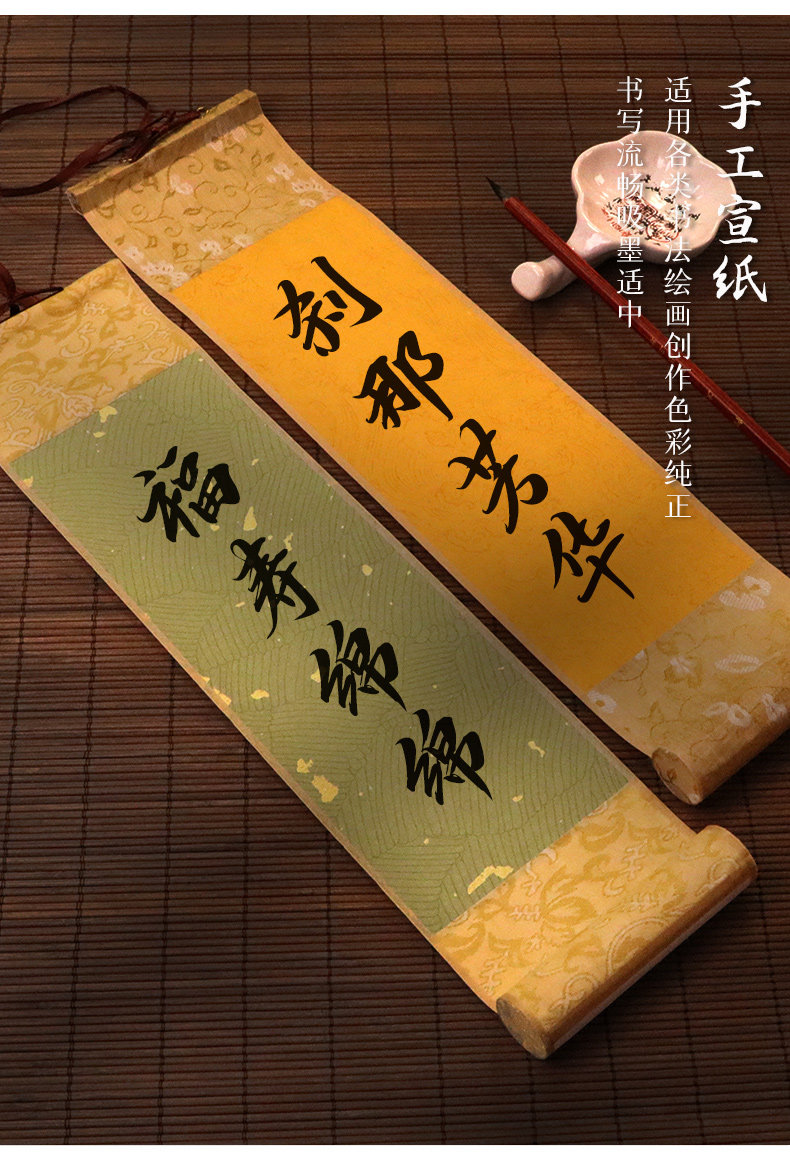 手工宣纸
适用各类书法绘画创作色彩纯正
书写流畅吸墨适中
刹那芳华
福寿绵绵